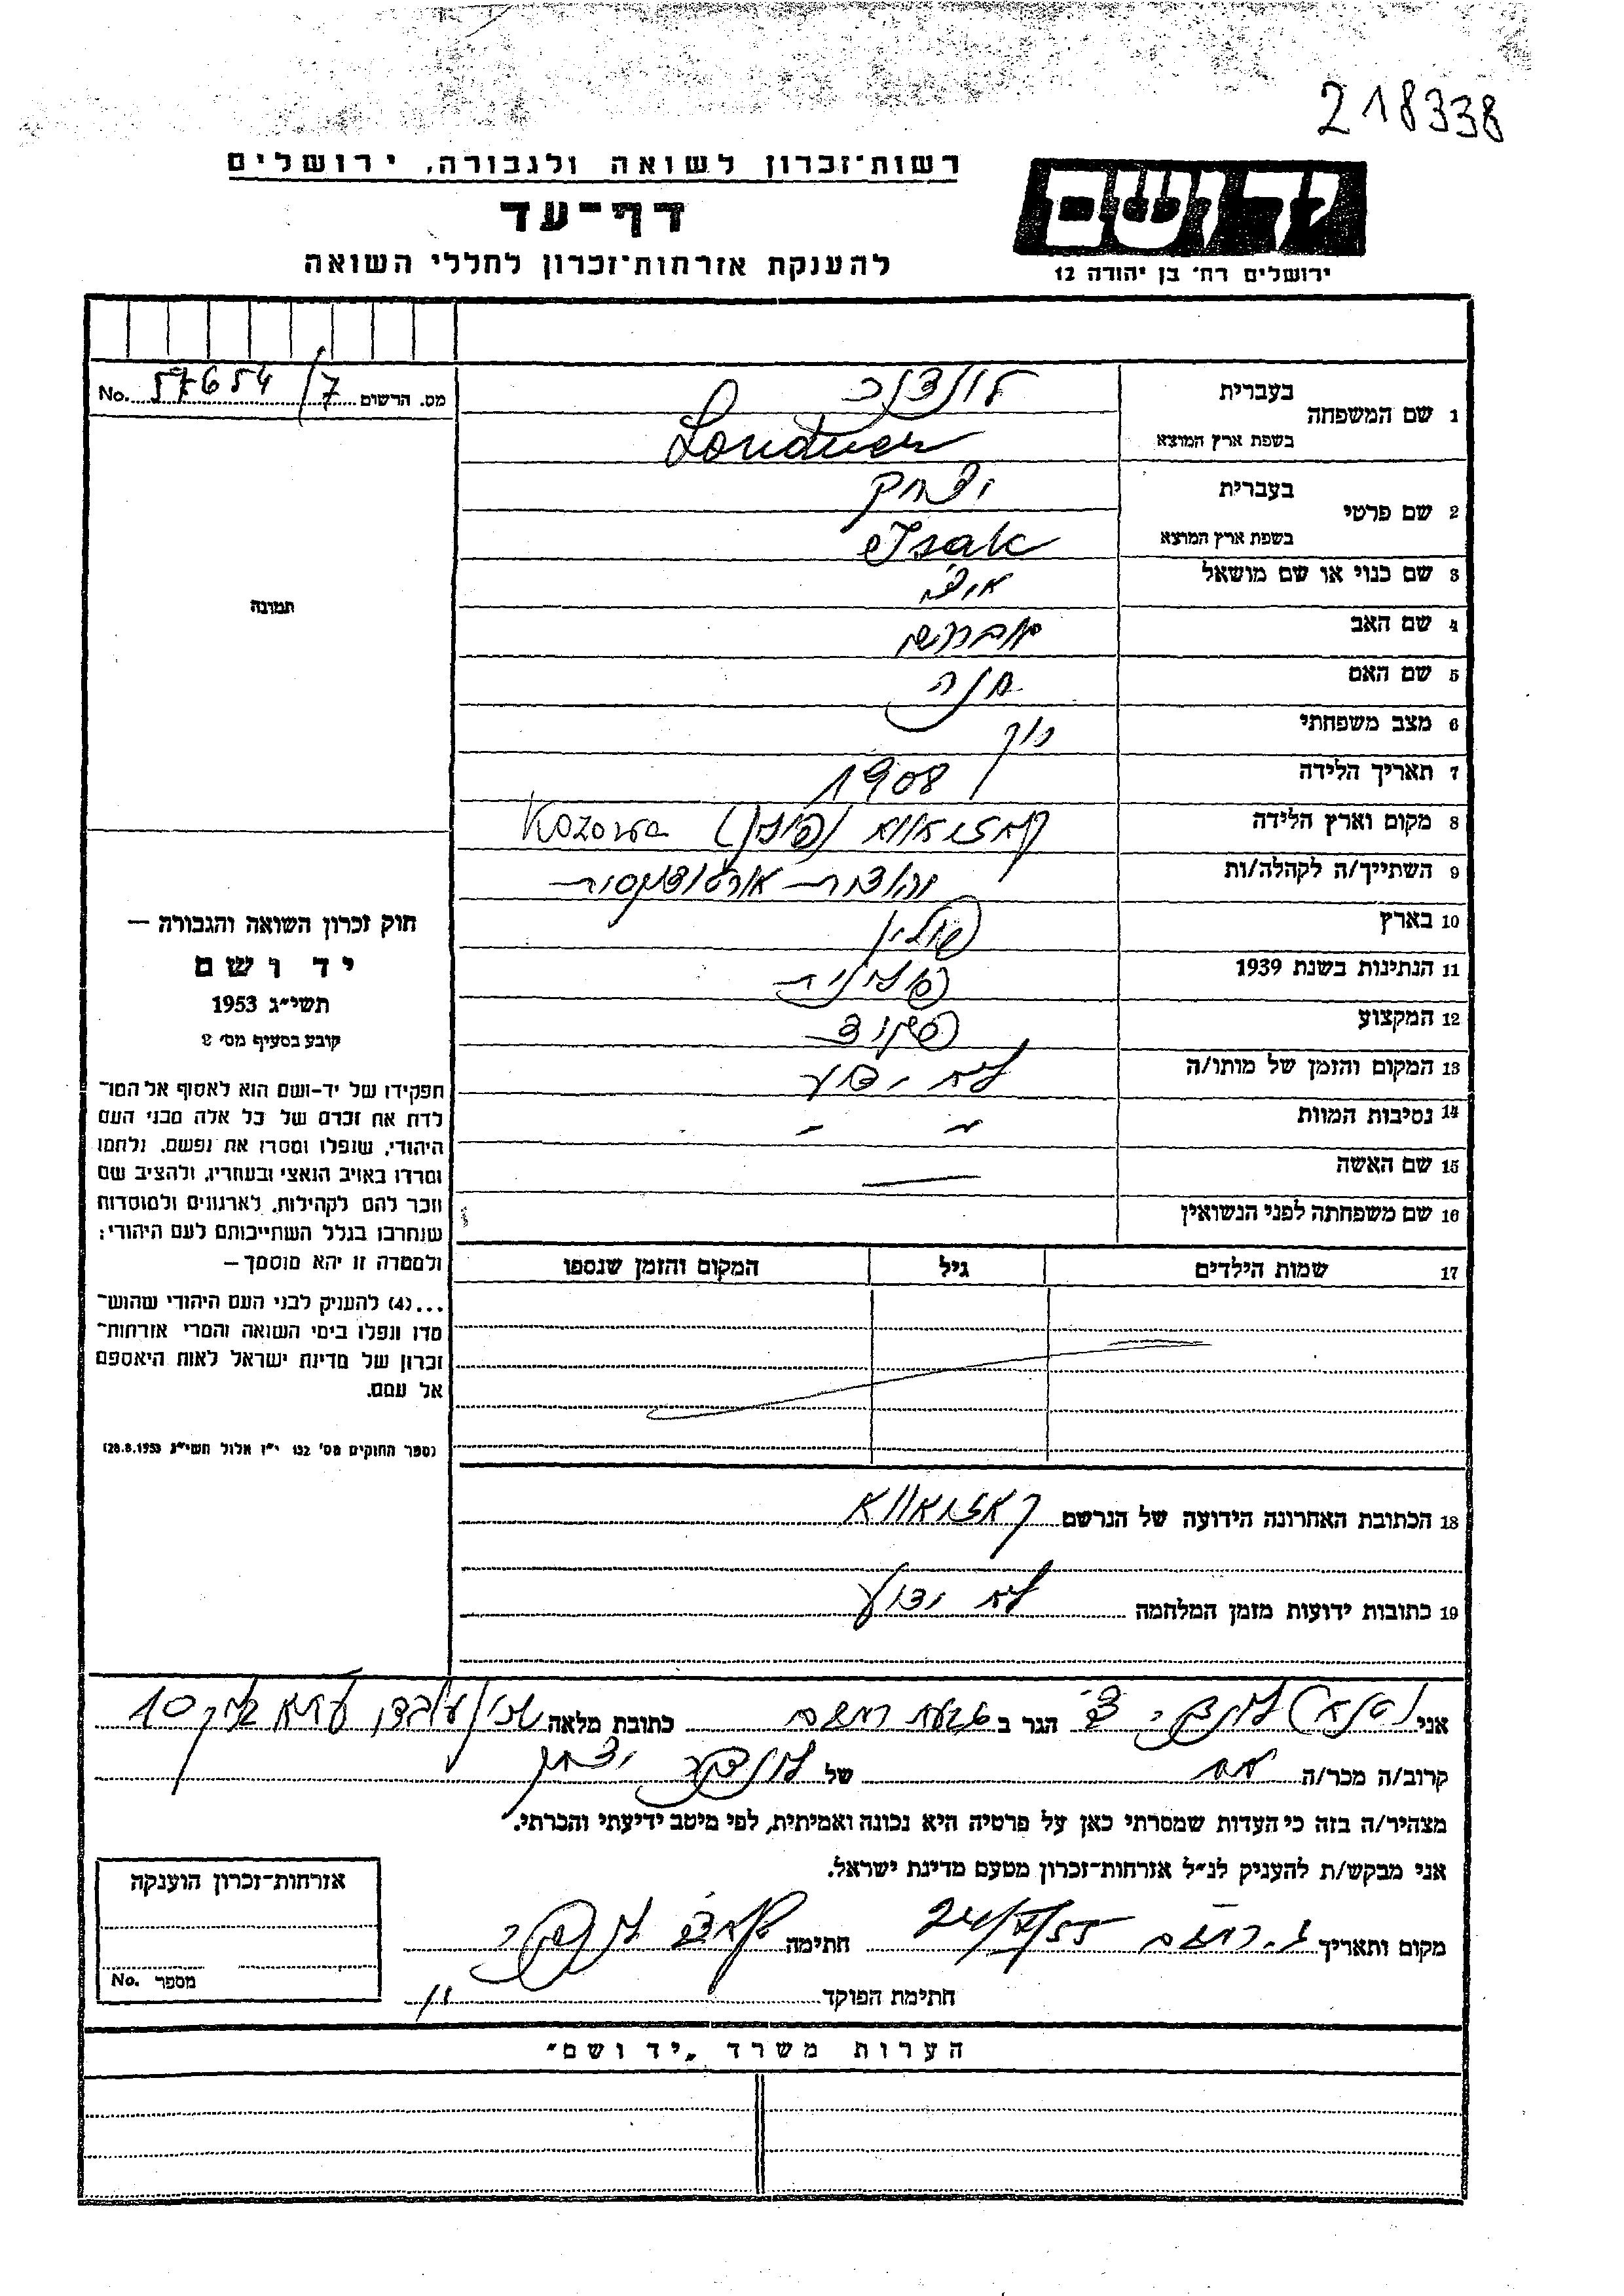 218338
רשות־זכרון לשואה ולגבורה, ירושלים
דף־עד
להענקת אזרחות־זכרון לחללי השואה
יד ושם
ירושלים רח׳ בן יהודה 12
מס. הרשום 57654/7 No.
תמונה
1 שם המשפחה
בעברית
בשפת ארץ המוצא Londner
2 שם פרטי
בעברית יצחק
בשפת ארץ המוצא Isak
3 שם כנוי או שם מושאל
4 שם האב אברהם
5 שם האם חנה
6 מצב משפחתי
7 תאריך הלידה 1908
8 מקום וארץ הלידה קאזאווא (פולין) Kozowa
9 השתייך/ה לקהלה/ות
10 בארץ פולין
11 הנתינות בשנת 1939 פולנית
12 המקצוע פקיד
13 המקום והזמן של מותו/ה לא ידוע
14 נסיבות המוות – –
15 שם האשה —
16 שם משפחתה לפני הנשואין
17 שמות הילדים גיל המקום והזמן שנספו
18 הכתובת האחרונה הידועה של הנרשם קאזאווא
19 כתובות ידועות מזמן המלחמה לא ידוע
חוק זכרון השואה והגבורה —
יד ושם
תשי״ג 1953
קובע בסעיף מס׳ 2
תפקידו של יד-ושם הוא לאסוף אל המו־
לדת את זכרם של כל אלה מבני העם
היהודי, שנפלו ומסרו את נפשם, נלחמו
ומרדו באויב הנאצי ובעוזריו, ולהציב שם
וזכר להם לקהילות, לארגונים ולמוסדות
שנחרבו בגלל השתייכותם לעם היהודי;
ולמטרה זו יהא מוסמך —
...(4) להעניק לבני העם היהודי שהוש־
מדו ונפלו בימי השואה והמרי אזרחות־
זכרון של מדינת ישראל לאות היאספם
אל עמם.
(ספר החוקים מס׳ 132 י״ז אלול תשי״ג 28.8.1953)
אני הגר ב כתובת מלאה 10
קרוב/ה מכר/ה אח של לונדנר יצחק
מצהיר/ה בזה כי העדות שמסרתי כאן על פרטיה היא נכונה ואמיתית, לפי מיטב ידיעתי והכרתי.
אני מבקש/ת להעניק לנ״ל אזרחות־זכרון מטעם מדינת ישראל.
מקום ותאריך 24/7/55 חתימה
חתימת הפוקד
אזרחות־זכרון הוענקה
מספר No.
הערות משרד „יד ושם״